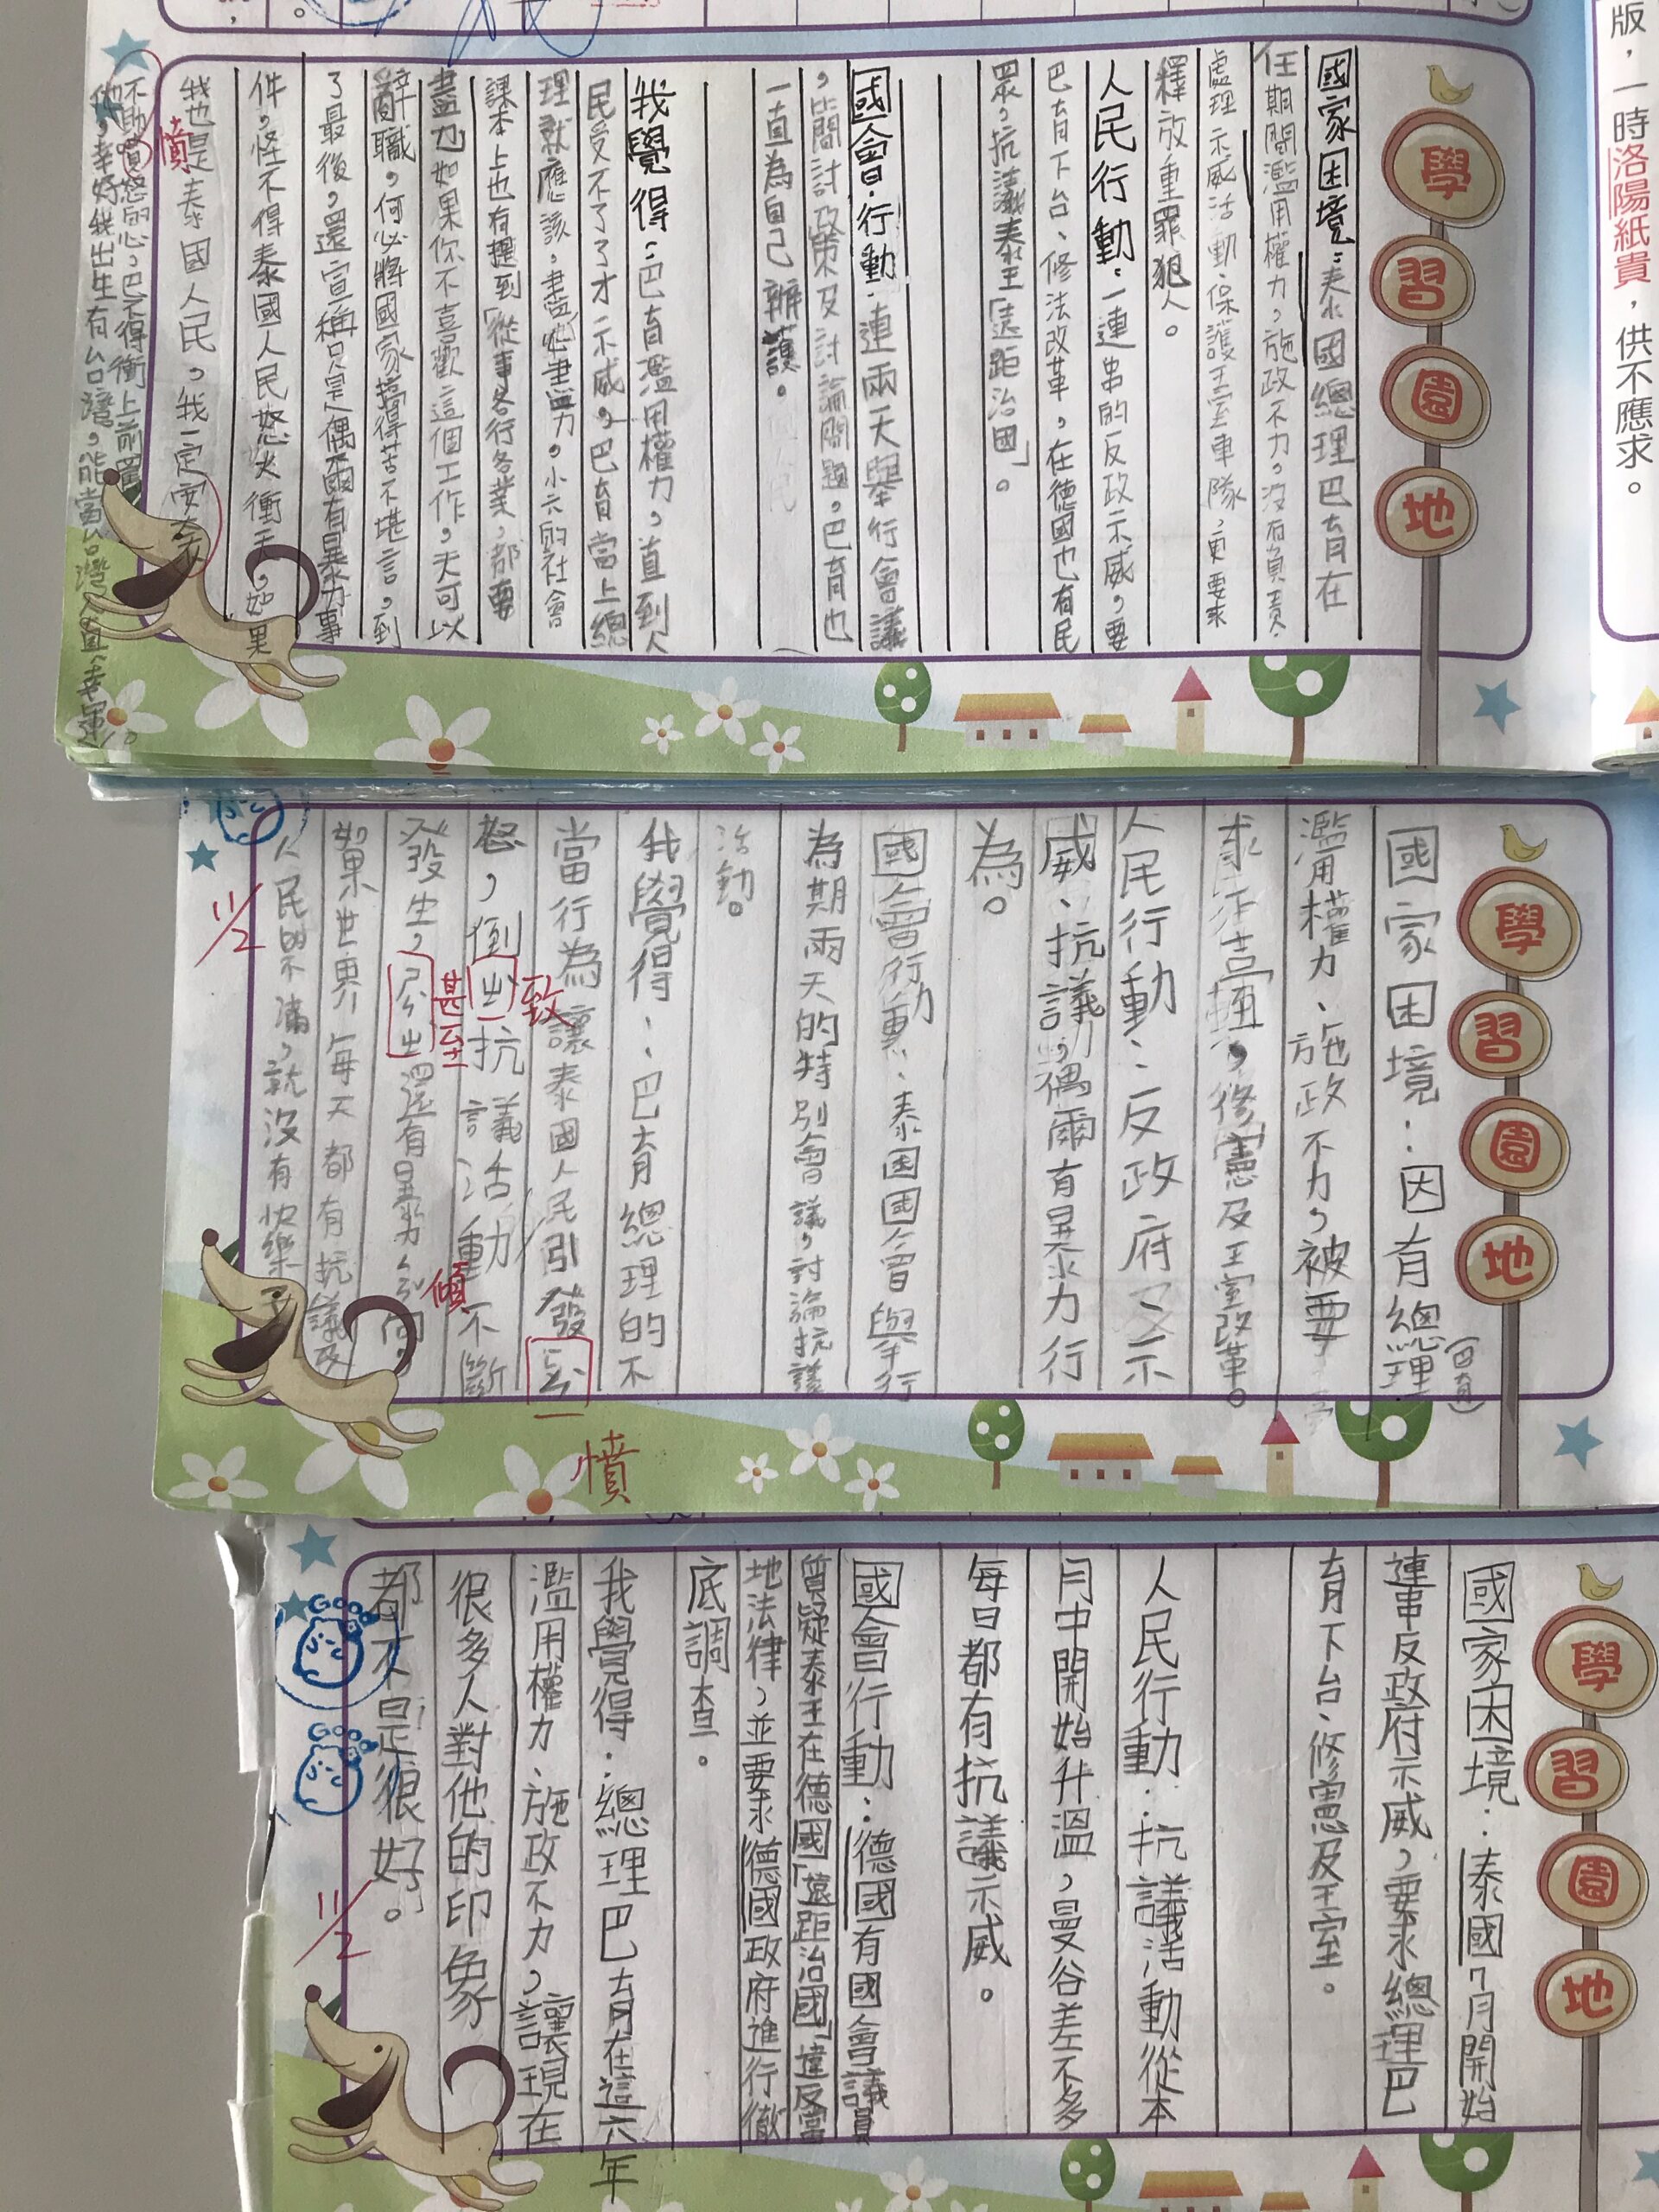 版，一時洛陽紙貴，供不應求。
學習園地
國家困境：泰國總理巴育在
任期間濫用權力，施政不力，沒有負責
處理示威活動、保護王室車隊，更要求
釋放重罪犯人。
人民行動：一連串的反政示威，要
巴育下台、修法改革，在德國也有民
眾，抗議泰王「遠距治國」。
國會行動：連兩天舉行會議
，簡討政策及討論問題，巴育也
一直為自己辨護。
我覺得：巴育濫用權力，直到人
民受不了了才示威，巴育當上總
理就應該，盡心盡力。小六的社會
課本上也有提到「從事各行各業，都要
盡力」如果你不喜歡這個工作，大可以
辭職，何必將國家搞得苦不堪言，到
了最後，還宣稱只是偶爾有暴力事
件，怪不得泰國人民怒火衝天，如果
我也是泰國人民，我一定
憤
幸好我出生有台灣，能當台灣人真幸運。
學習園地
國家困境：因有總理
(巴育)
濫用權力、施政不力，被要
求
修憲及王室改革。
人民行動：反政府及示
威、抗議，偶爾有暴力行
為。
國會行動：泰國國會舉行
為期兩天的特別會議，討論抗議
活動。
我覺得：巴育總理的不
當行為讓泰國人民引發
憤
怒，倒出抗議活動不斷
致
發生，
甚至
還有暴力
傾
如果世界每天都有抗議及
人民的不滿，就沒有快樂了
11/2
學習園地
國家困境：泰國7月開始
連串反政府示威，要求總理巴
育下台、修憲及王室。
人民行動：抗議活動從本
月中開始升溫，曼谷差不多
每日都有抗議示威。
國會行動：德國有國會議員
質疑泰王在德國「遠距治國」違反當
地法律，並要求德國政府進行徹
底調查。
我覺得：總理巴育在這六年
濫用權力、施政不力，讓現在
很多人對他的印象
都不是很好。
Good
Good
11/2